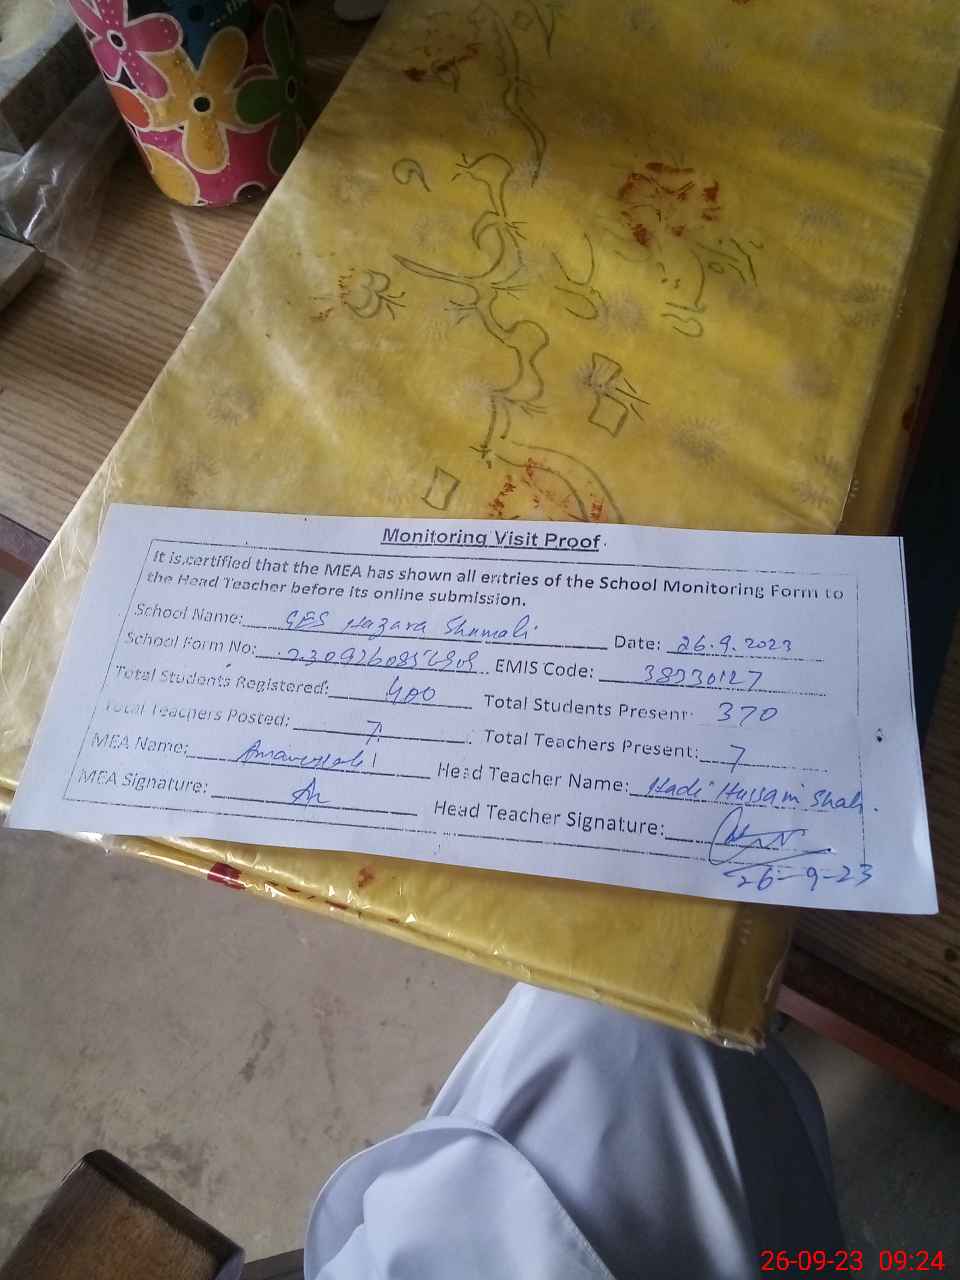 Monitoring Visit Proof
It is certified that the MEA has shown all entries of the School Monitoring Form to
the Head Teacher before its online submission.
School Name: GES Hazara Shumali Date: 26.9.2023
School Form No: EMIS Code:
Total Students Registered: 400 Total Students Present: 370
Total Teachers Posted: 7 Total Teachers Present: 7
MEA Name: Head Teacher Name: Hadi Hussain Shah.
MEA Signature: Head Teacher Signature:
26-9-23
26-09-23 09:24